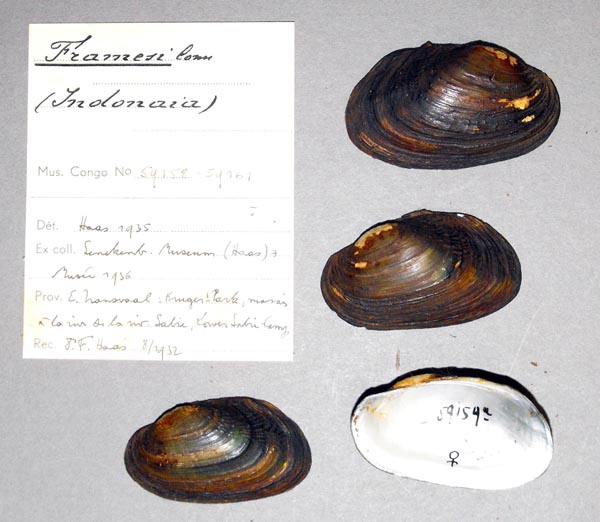 Framesi Conn
(Indonaia)
Mus. Congo No 59158-59161
Dét. Haas 1935
Ex coll. Senckenb. Museum (Haas)
Musée 1936
Prov. E. Transvaal: Kruger Park, marais
à la rive de la riv. Sabie, Lower Sabie Camp,
Rec. Dr F. Haas 8/1932
59159a
♀